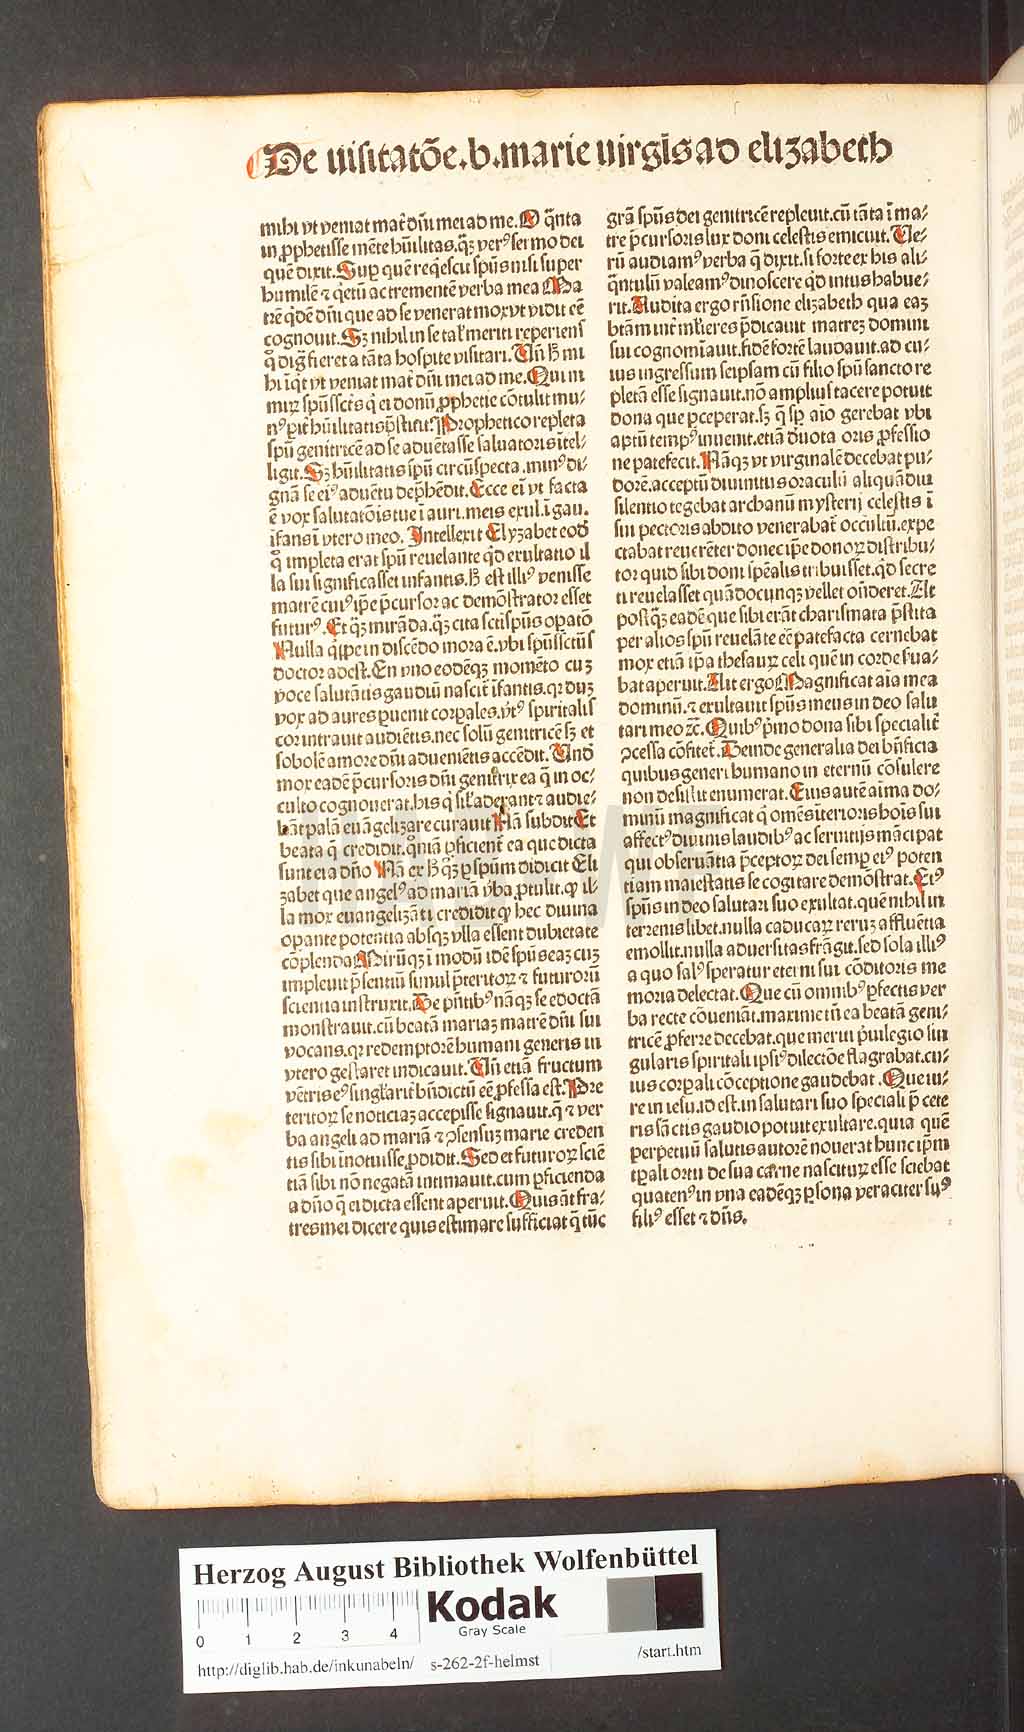 De uisitatõe.b.marie uirgĩs ad elizabeth
mihi vt veniat mat̃ dñi mei ad me.O q̃nta
in ꝓphetisse mẽte hũilitas.q̃ꝫ verꝰ sermo dei
quẽ dixit.Suꝑ quẽ req̃escit spũs nisi super
humilẽ ⁊ q̃etũ ac trementẽ verba mea Ma
trẽ q̃dẽ dñi que ad se venerat mox vt vidit eẽ
cognouit.Sꝫ nihil in se tal̃ meriti reperiens
q̃ dig̃ fieret a tãta hospite visitari.Vñ h̃ mi
hi inq̃t vt veniat mat̃ dñi mei ad me.Quini
miꝝ spũssct̃s q̃ ei donũ ꝓphetie cõtulit mu⸗
nꝰ ꝑit̃ hũilitatis p̃stitit.Prophetico repleta
spũ genitricẽ ad se aduẽtasse saluatoris ĩtel⸗
ligit.Sꝫ hũilitatis spũ circũspecta.minꝰ di⸗
gnã se eiꝰ aduẽtu dep̃hẽdit.Ecce eĩ vt facta
ẽ vox salutatõis tue ĩ auri.meis exul.ĩ gau.
ĩfans ĩ vtero meo.Intellexit Elyzabet eod̃
q̃ impleta erat spũ reuelante q̃d exultatio il
la sui significasset infantis.h̃ est illiꝰ venisse
matrẽ cuiꝰ ip̃e p̃cursor ac demõstrator esset
futurꝰ.Et q̃ꝫ mirãda.q̃ꝫ cita sctĩ spũs oꝑatõ
Nulla q̃ppe in discẽdo mora ẽ.vbi spũssctũs
doctor adest.En vno eodẽqꝫ momẽto cuꝫ
voce salutãtis gaudiũ nascit̃ ĩfantis.qꝛ duꝫ
vox ad aures ꝑuenit corꝑales.vt̃ꝰ spiritalis
cor intrauit audiẽtis.nec solũ genitricẽ sꝫ et
sobolẽ amore dñi adueniẽtis accẽdit.Vnd̃
mox eadẽ p̃cursoris dñi genitrix ea q̃ in oc⸗
culto cognouerat.his q̃ sil̃ aderant ⁊ audie⸗
bãt palã euãgelizare curauit Nã subdit Et
beata q̃ credidit.qm̃ã ꝑficient̃ ea que dicta
sunt ei a dño Nã ex h̃ q̃ꝫ ꝑ spũm didicit Eli
zabet que angelꝰ ad mariã v̾ba ꝓtulit.ꝙ il⸗
la mox euangelizãti credidit ꝙ hec diuina
oꝑante potentia absqꝫ vlla essent dubietate
cõplenda Mirũqꝫ ĩ modũ idẽ spũs eaꝫ cuꝫ
impleuit p̃sentiũ simul p̃teritoꝝ ⁊ futuroꝝ
scientia instruxit.De p̃ntibꝰ nãqꝫ se edoctã
monstrauit.cũ beatã mariaꝫ matrẽ dñi sui
vocans.qꝛ redemptorẽ humani generis in
vtero gestaret indicauit.Vñ etiã fructum
vẽtris eꝰ singl̃arit̃ bñdictũ eẽ ꝓfessa est.Pre
teritoꝝ se noticiaꝫ accepisse signauit.q̃ ⁊ ver
ba angeli ad mariã ⁊ ꝯsensuꝫ marie creden
tis sibi ĩnotuisse ꝓdidit.Sed et futuroꝝ sciẽ
tiã sibi nõ negatã intimauit.cum ꝑficienda
a dño q̃ ei dicta essent aperuit.Quis aũt fra⸗
tres mei dicere quis estimare sufficiat q̃ tũc
grã spũs dei genitricẽ repleuit.cũ tãta ĩ ma⸗
tre p̃cursoris lux doni celestis emicuit.Ve⸗
rũ audiamꝰ verba q̃ dixit.si forte ex his ali⸗
q̃ntulũ valeamꝰ dinoscere q̃d intus habue⸗
rit.Audita ergo rñsione elizabeth qua eaꝫ
btãm int̃ ml̃ieres p̃dicauit matreꝫ domini
sui cognomĩauit.fidẽ fortẽ laudauit.ad cu⸗
ius ingressum seipsam cũ filio spũ sancto re
pletã esse signauit.nõ amplius tacere potuit
dona que ꝑceperat.sꝫ q̃ sp̃ aĩo gerebat vbi
aptũ tempꝰ inuenit.etiã d̾uota oris ꝓfessio
ne patefecit.Nãqꝫ vt virginalẽ decebat pu⸗
dorẽ.acceptũ diuinitus oraculũ aliquãdiu
silentio tegebat archanũ mysterij celestis ĩ
sui pectoris abdito venerabat̃ occultũ.expe
ctabat reuerẽter donec ip̃e donoꝝ distribu⸗
tor quid sibi doni sp̃ealis tribuisset.q̃d secre
ti reuelasset quãdocunqꝫ vellet oñderet.At
postq̃ꝫ eadẽ que sibi erãt charismata p̃stita
per alios spũ reuelãte eẽ patefacta cernebat
mox etiã ip̃a thesauꝝ celi quẽ in corde sua⸗
bat aperuit.Ait ergo Magnificat aĩa mea
dominũ.⁊ exultauit spũs meus in deo salu
tari meo ꝛc̃.Quibꝰ p̾mo dona sibi specialit̃
ꝯcessa cõfitet̃.Deinde generalia dei bñficia
quibus generi humano in eternũ cõsulere
non desistit enumerat.Eius autẽ aĩma do⸗
minũ magnificat q̃ omẽs ĩterioris hoĩs sui
affectꝰ diuinis laudibꝰ ac seruitijs mãcipat
qui obseruãtia p̃ceptoꝝ dei semꝑ eiꝰ poten
tiam maiestatis se cogitare demõstrat.Eiꝰ
spũs in deo salutari suo exultat.quẽ nihil in
terrenis libet.nulla caducaꝝ reruꝫ affluẽtia
emollit.nulla aduersitas frãgit.sed sola illiꝰ
a quo salꝰ speratur eterni sui cõditoris me
moria delectat.Que cũ omnibꝰ ꝑfectis ver
ba recte cõueniãt.maxime tñ ea beatã geni⸗
tricẽ ꝓferre decebat.que meriti p̾uilegio sin
gularis spiritali ipsiꝰ dilectõe flagrabat.cu⸗
ius corꝑali cõceptione gaudebat.Que iu⸗
re in iesu.id est.in salutari suo speciali p̃ cete
ris sãctis gaudio potuit exultare.quia quẽ
perpetuũ salutis autorẽ nouerat hunc ip̃m
tꝑali ortu de sua carne nasciturꝫ esse sciebat
quatenꝰ in vna eadẽqꝫ ꝑsona veraciter suꝰ
filiꝰ esset ⁊ dñs.
HAB WF
Herzog August Bibliothek Wolfenbüttel
0 1 2 3 4
Kodak
Gray Scale
http://diglib.hab.de/inkunabeln/ s-262-2f-helmst /start.htm